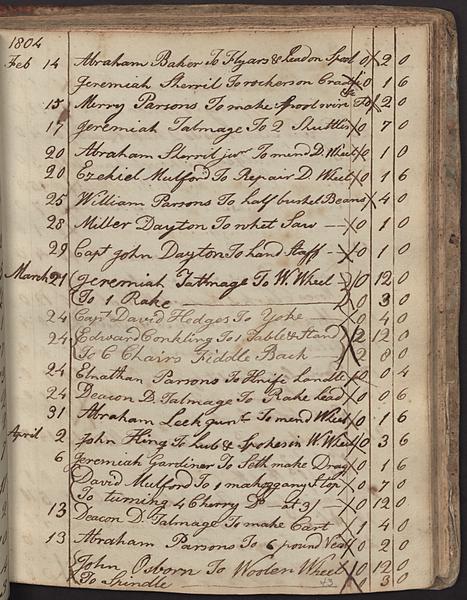 1804
Feb 14 Abraham Baker To Flyars & Lead on Spool 0 2 0
Jeremiah Sherril To rockers on Cradle 0 1 6
15 Merry Parsons To make Spool wire &c 0 2 0
17 Jeremiah Talmage To 2 Shuttles 0 7 0
20 Abraham Sherril junr To mend D. Wheel 0 1 0
20 Ezekiel Mulford To Repair D Wheel 0 1 6
25 William Parsons To half bushel Beans 4 0
28 Miller Dayton To whet Saw 0 1 0
29 Capt John Dayton To hand Staff 0 1 0
March 21 Jeremiah Talmage To W. Wheel 0 12 0
To 1 Rake 0 3 0
24 Capt David Hedges To Yoke 0 4 0
24 Edward Conkling To 1 Table & Stand 2 12 0
To 6 Chairs Fiddle Back 2 8 0
24 Elnathan Parsons To Knife handle 0 0 4
24 Deacon D. Talmage To Rake head 0 0 6
31 Abraham Leek To mend Wheel 0 1 6
April 2 John King To hub & Spokes in W. Wheel 0 3 6
6 Jeremiah Gardiner To Teeth make Drag 0 1 6
David Mulford To 1 mahogany Stop 0 7 0
To turning 4 Cherry Do at 3/ 0 12 0
13 Deacon D. Talmage To make Cart 1 4 0
13 Abraham Parsons To 6 pound Veal 0 2 0
John Osborn To Woolen Wheel 0 12 0
To Spindle 0 3 0
43